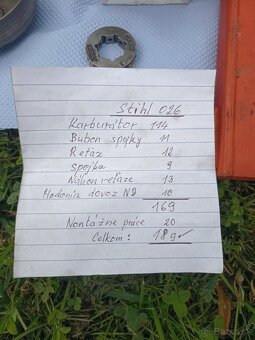 Stihl 026
Karburátor 114
Bubon spojky 11
Reťaz 12
Spojka 9
Náhon reťaze 13
dovoz ND 10
169
Montážne práce 20
Celkom: 189